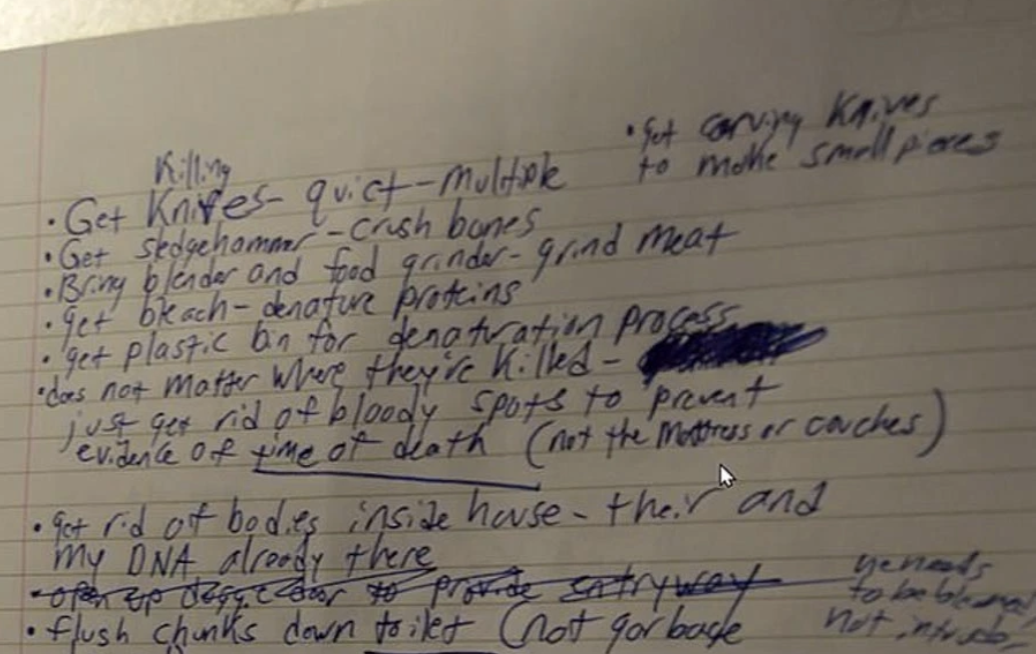 Killing
· Get Knifes - quiet - multiple
· get carving knives
to make small pieces
· Get sledgehammer - crush bones
· Bring blender and food grinder - grind meat
· get bleach - denature proteins
· get plastic bin for denaturation process
· does not matter where they're killed -
just get rid of bloody spots to prevent
evidence of time of death (not the mattress or couches)
· get rid of bodies inside house - their and
my DNA already there
to provide entryway
he needs
to be blamed
not
· flush chunks down toilet (not garbage